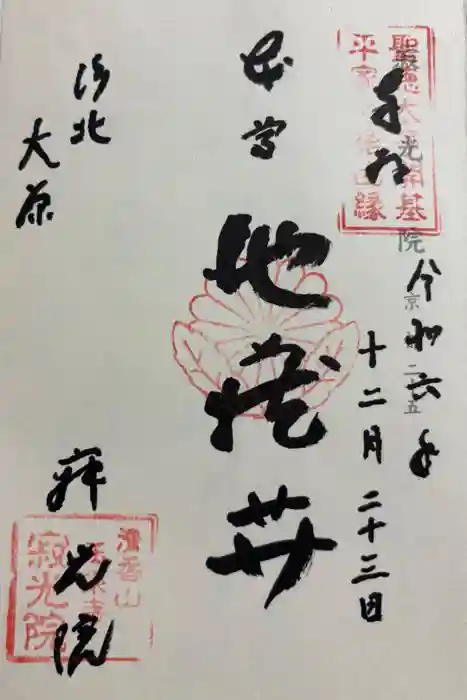 奉拝
令和六年
十二月二十三日
本尊
地蔵井
洛北
大原
寂光院
聖徳太子開基
平家物語由縁
清香山
玉泉寺
寂光院